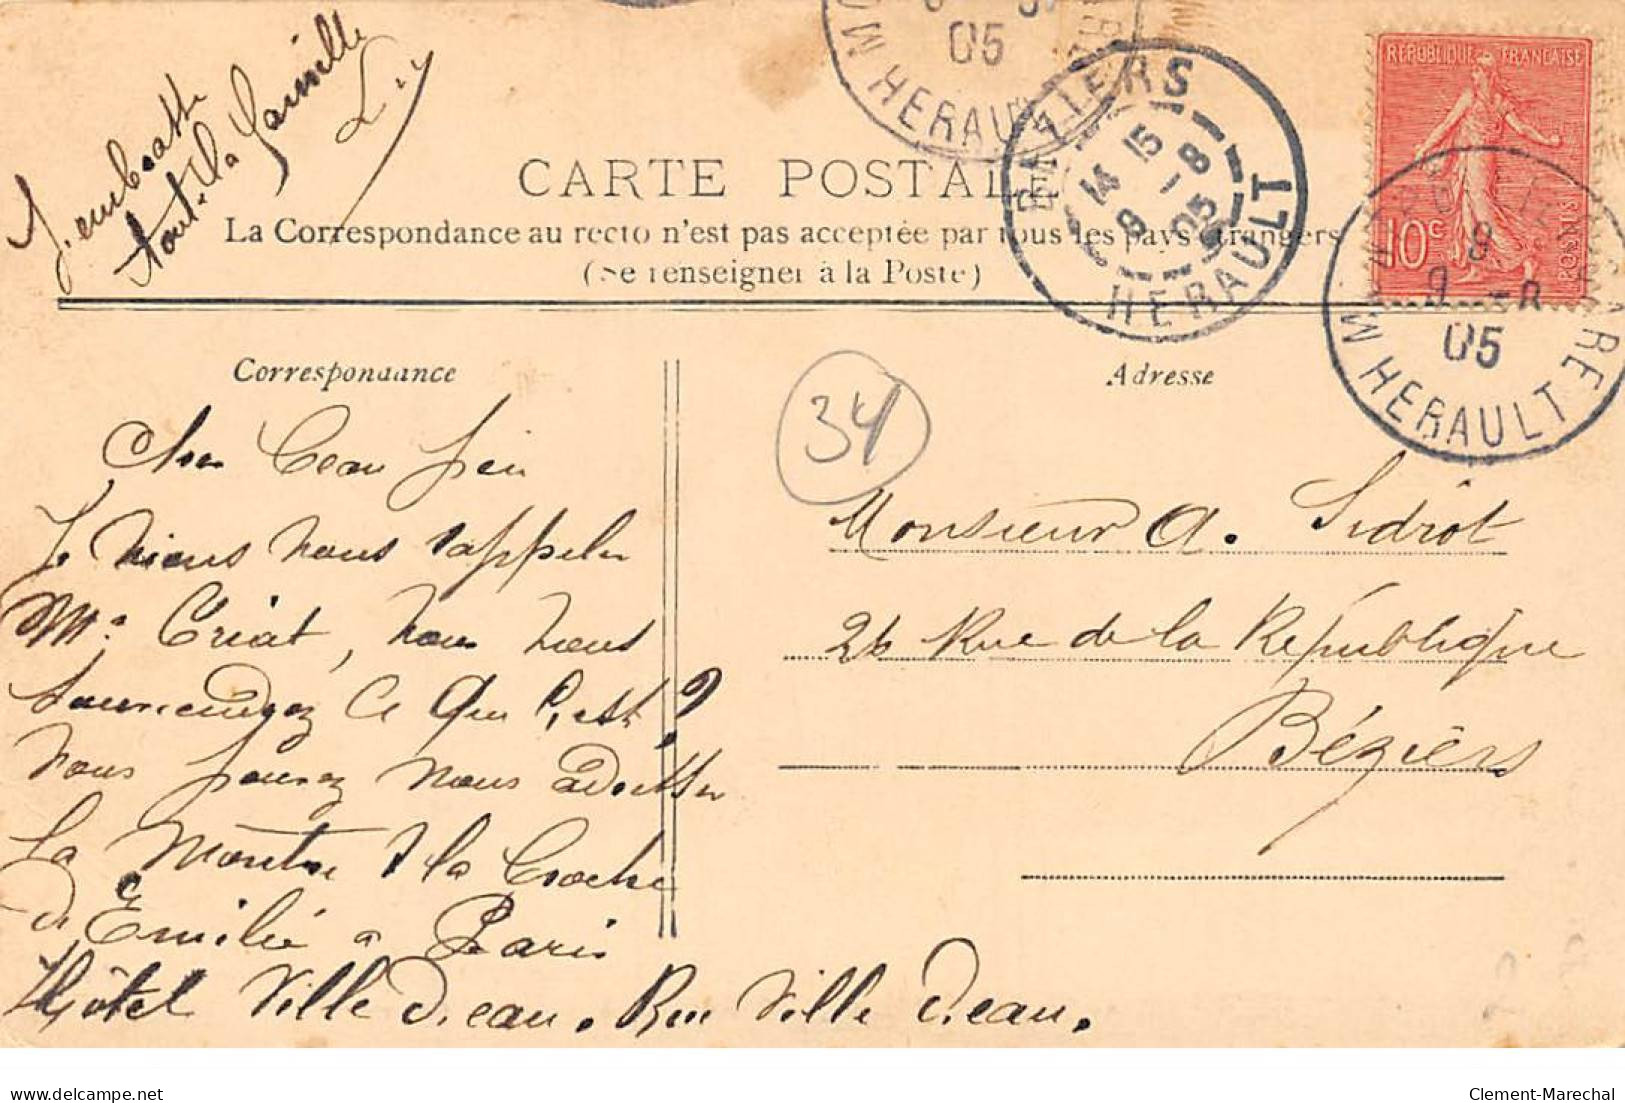 J. embrasse
toute la famille
L
RÉPUBLIQUE FRANÇAISE
10c
POSTES
05
HERAULT
BEZIERS
14 15
9 - 8
05
HERAULT
9
05
HERAULT
CARTE POSTALE
La Correspondance au recto n'est pas acceptée par tous les pays étrangers
(Se renseigner à la Poste)
Correspondance
Adresse
34
Cher
Je viens vous rappeler
Mr Criat, vous vous
souviendrez ce que c'est?
vous pouvez nous adresser
La Montre & la Broche
d'Emilie a Paris
Hôtel Ville d.eau. Rue Ville d.eau.
Monsieur A. Sidrot
26 Rue de la République
Béziers
delcampe.net
Clement-Marechal